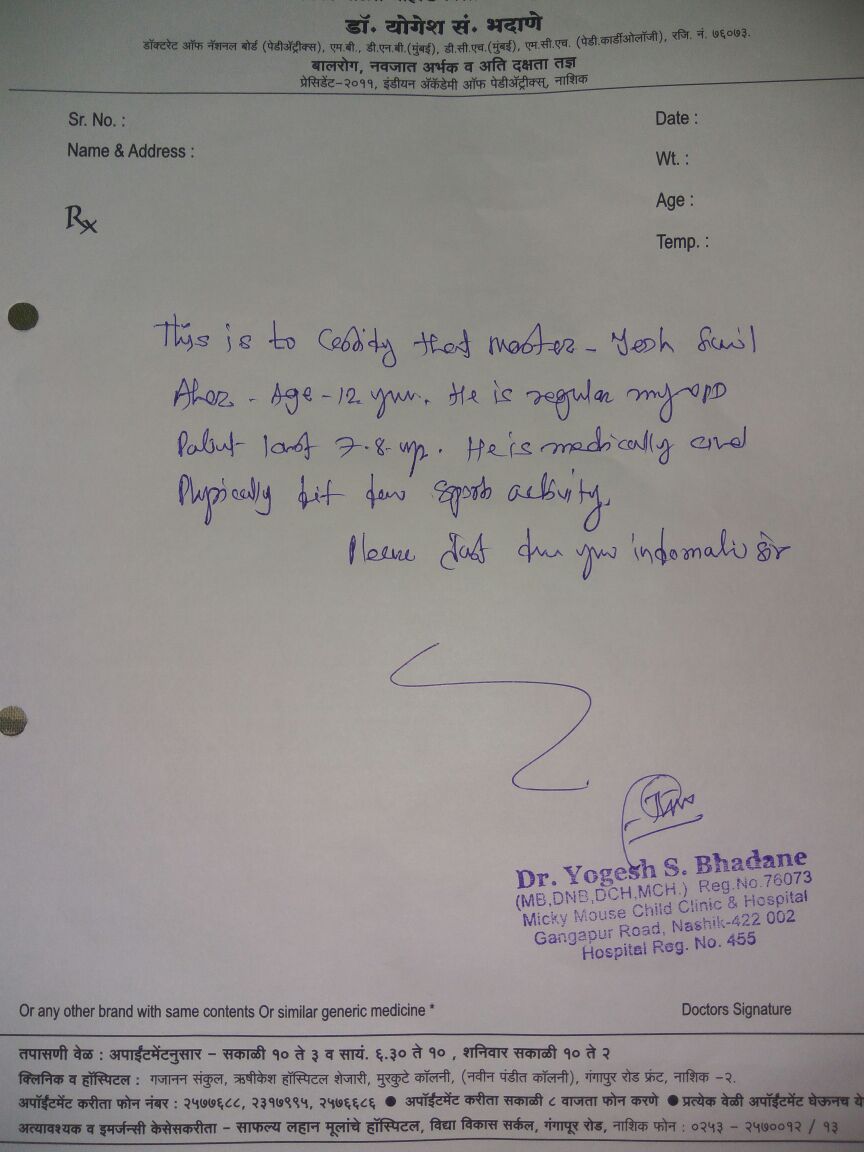 डॉ. योगेश सं. भदाणे
डॉक्टरेट ऑफ नॅशनल बोर्ड (पेडीॲट्रीक्स), एम.बी., डी.एन.बी.(मुंबई), डी.सी.एच.(मुंबई), एम.सी.एच. (पेडी.कार्डीओलॉजी), रजि. नं. ७६०७३.
बालरोग, नवजात अर्भक व अति दक्षता तज्ञ
प्रेसिडेंट-२०११, इंडीयन ॲकॅडेमी ऑफ पेडीॲट्रीक्स्, नाशिक
Sr. No. :
Date :
Name & Address :
Wt. :
Age :
Rx
Temp. :
This is to that master - Yash
Aher - Age - 12 He is regular my OPD
last 7-8 He is medically and
Physically fit activity.
Please
Dr. Yogesh S. Bhadane
(MB,DNB,DCH,MCH.) Reg.No.76073
Micky Mouse Child Clinic & Hospital
Gangapur Road, Nashik-422 002
Hospital Reg. No. 455
Or any other brand with same contents Or similar generic medicine *
Doctors Signature
तपासणी वेळ : अपाईंटमेंटनुसार - सकाळी १० ते ३ व सायं. ६.३० ते १० , शनिवार सकाळी १० ते २
क्लिनिक व हॉस्पिटल : गजानन संकुल, ऋषीकेश हॉस्पिटल शेजारी, मुरकुटे कॉलनी, (नवीन पंडीत कॉलनी), गंगापुर रोड फ्रंट, नाशिक -२.
अपॉईंटमेंट करीता फोन नंबर : २५७७६८८, २३१७९९५, २५७६६८६ ● अपॉईंटमेंट करीता सकाळी ८ वाजता फोन करणे ● प्रत्येक वेळी अपॉईंटमेंट घेऊनच
अत्यावश्यक व इमर्जन्सी केसेसकरीता - साफल्य लहान मूलांचे हॉस्पिटल, विद्या विकास सर्कल, गंगापूर रोड, नाशिक फोन : ०२५३ - २५७००१२ / १३